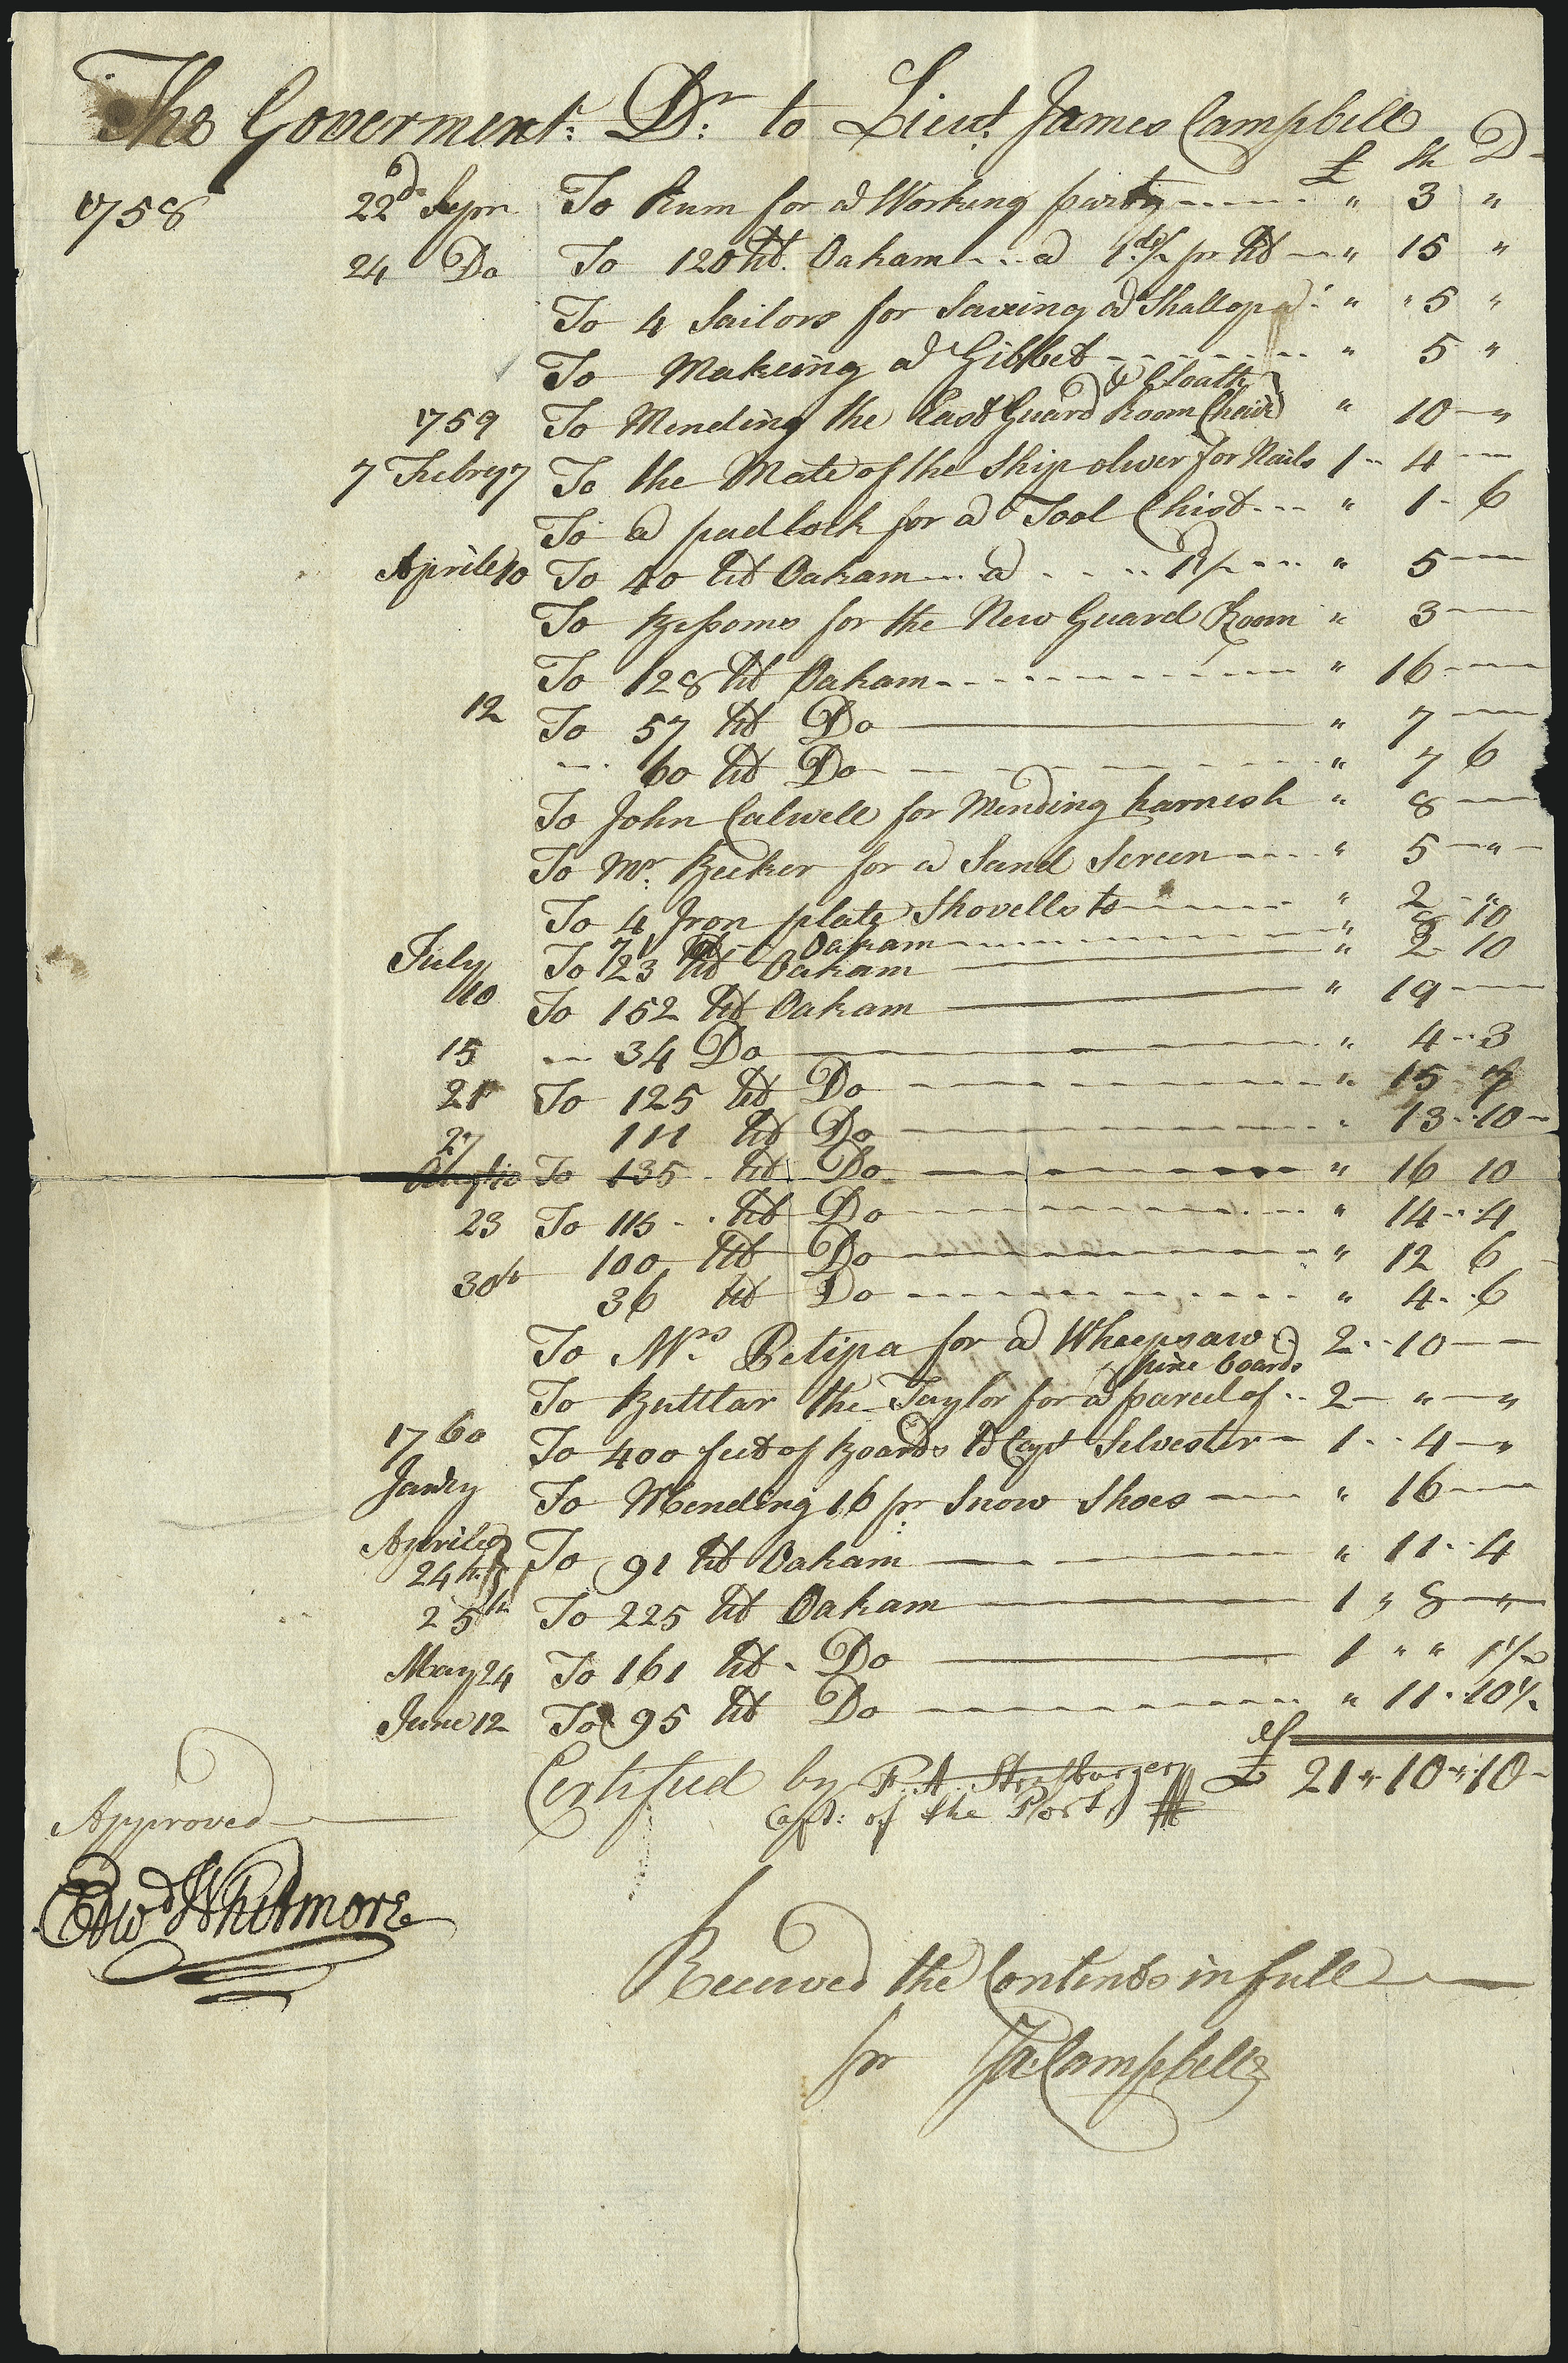 The Goverment Dr. to Lieut. James Campbell
£ Sh D
1758 22d Sepr. To Rum for a Working party " 3 "
24 Do To 120 lb. Oakam a 1 d½ pr lb " 15 "
To 4 Sailors for Saveing a Shallop " 5 "
To Makeing a Gibbet " 5 "
& Cloath
1759 To Mending the East Guard Room Chair " 10 "
7 Febry 7 To the Mate of the Ship oliver for Nails 1 4
To a padlock for a Tool Chist " 1 6
Aprile 10 To 40 lb Oakam a " 5
To Bessoms for the New Guard Room " 3
To 128 lb Oakam " 16
12 To 57 lb Do " 7
60 lb Do " 7 6
To John Calwell for Mending harnish " 8
To Mr. Beeker for a Sand Screen " 5 "
To 4 Iron plate Shovells to " 2 "
71 lb Oakam " 8 10
July To 23 lb Oakam " 2 10
10 To 152 lb Oakam " 19
15 34 Do " 4 3
21 To 125 lb Do " 15 7
27 111 lb Do " 13 10
Augt 10 To 135 lb Do " 16 10
23 To 115 lb Do " 14 4
100 lb Do " 12 6
30th 36 lb Do " 4 6
To Mrs Petipa for a Wheepsaw 2 10
pine boards
To Buttlar the Taylor for a parcel of 2 " "
1760 To 400 feet of Boards to Capt Silvester 1 4 "
Janry To Mending 16 pr Snow Shoes " 16
Aprile
24th To 91 lb Oakam " 11 4
25th To 225 lb Oakam 1 " 8 "
May 24 To 161 lb Do 1 " " 1½
June 12 To 95 lb Do " 11 10½
Certifued by F. A. Strasburger £ 21 " 10 " 10
Capt: of the Port
Approved
Edwd Whitmore
Received the Contents in full
pr Ja Campbell